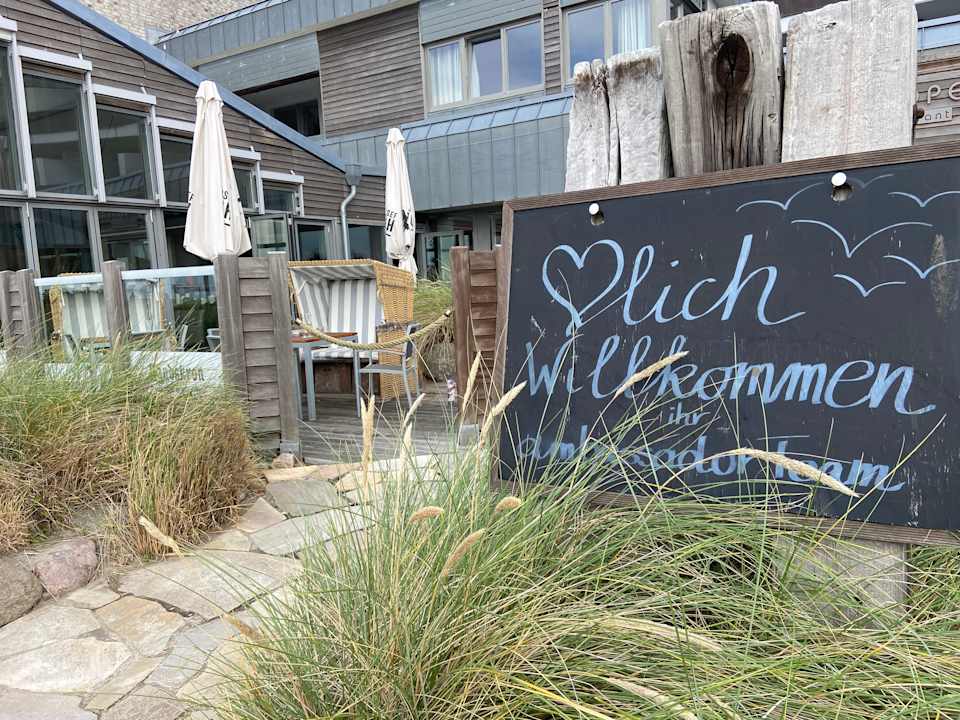 ♡lich
Willkommen
ihr
ambassador team